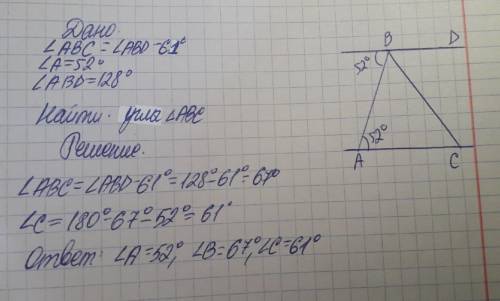 Дано.
∠ABC = ∠ABD-61°
∠A=52°
∠ABD=128°
Найти: угла ∠ABC
Решение.
∠ABC=∠ABD-61°=128°-61°=67°
∠C=180°-67°-52°=61°
Ответ: ∠A=52°, ∠B=67°, ∠C=61°
B D
52°
52°
A C